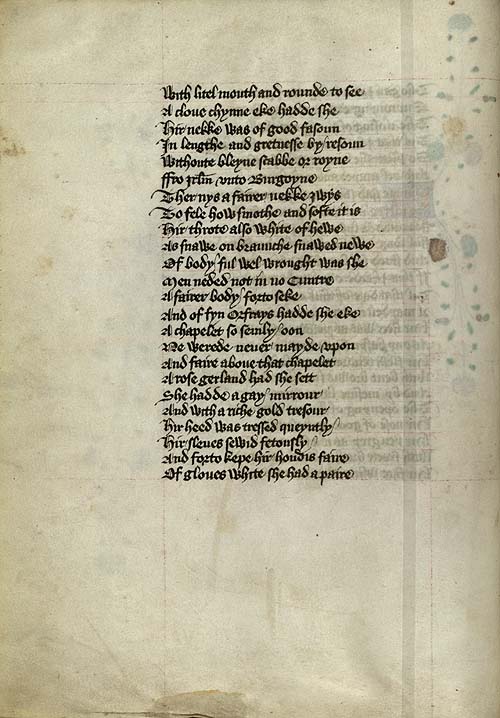 With litel mouth and rounde to see
A clove chynne eke hadde she
Hir nekke was of good fasoun
In lengthe and gretnesse by resoun
Withoute bleyne scabbe or royne
ffro Jrlm vnto Burgoyne
Ther nys a fairer nekke ywys
To fele how smothe and softe it is
Hir throte also white of hewe
As snawe on braunche snawed newe
Of body ful wel wrought was she
Men neded not in no Cuntre
A fairer body forto seke
And of fyn Orfrays hadde she eke
A chapelet so semly oon
Ne werede never mayde vpon
And faire above that chapelet
A rose gerland had she sett
She hadde a gay mirrour
And with a riche gold tresour
Hir heed was tressed queyntly
Hir sleves sewid fetously
And forto kepe hir hondis faire
Of gloves white she had a paire